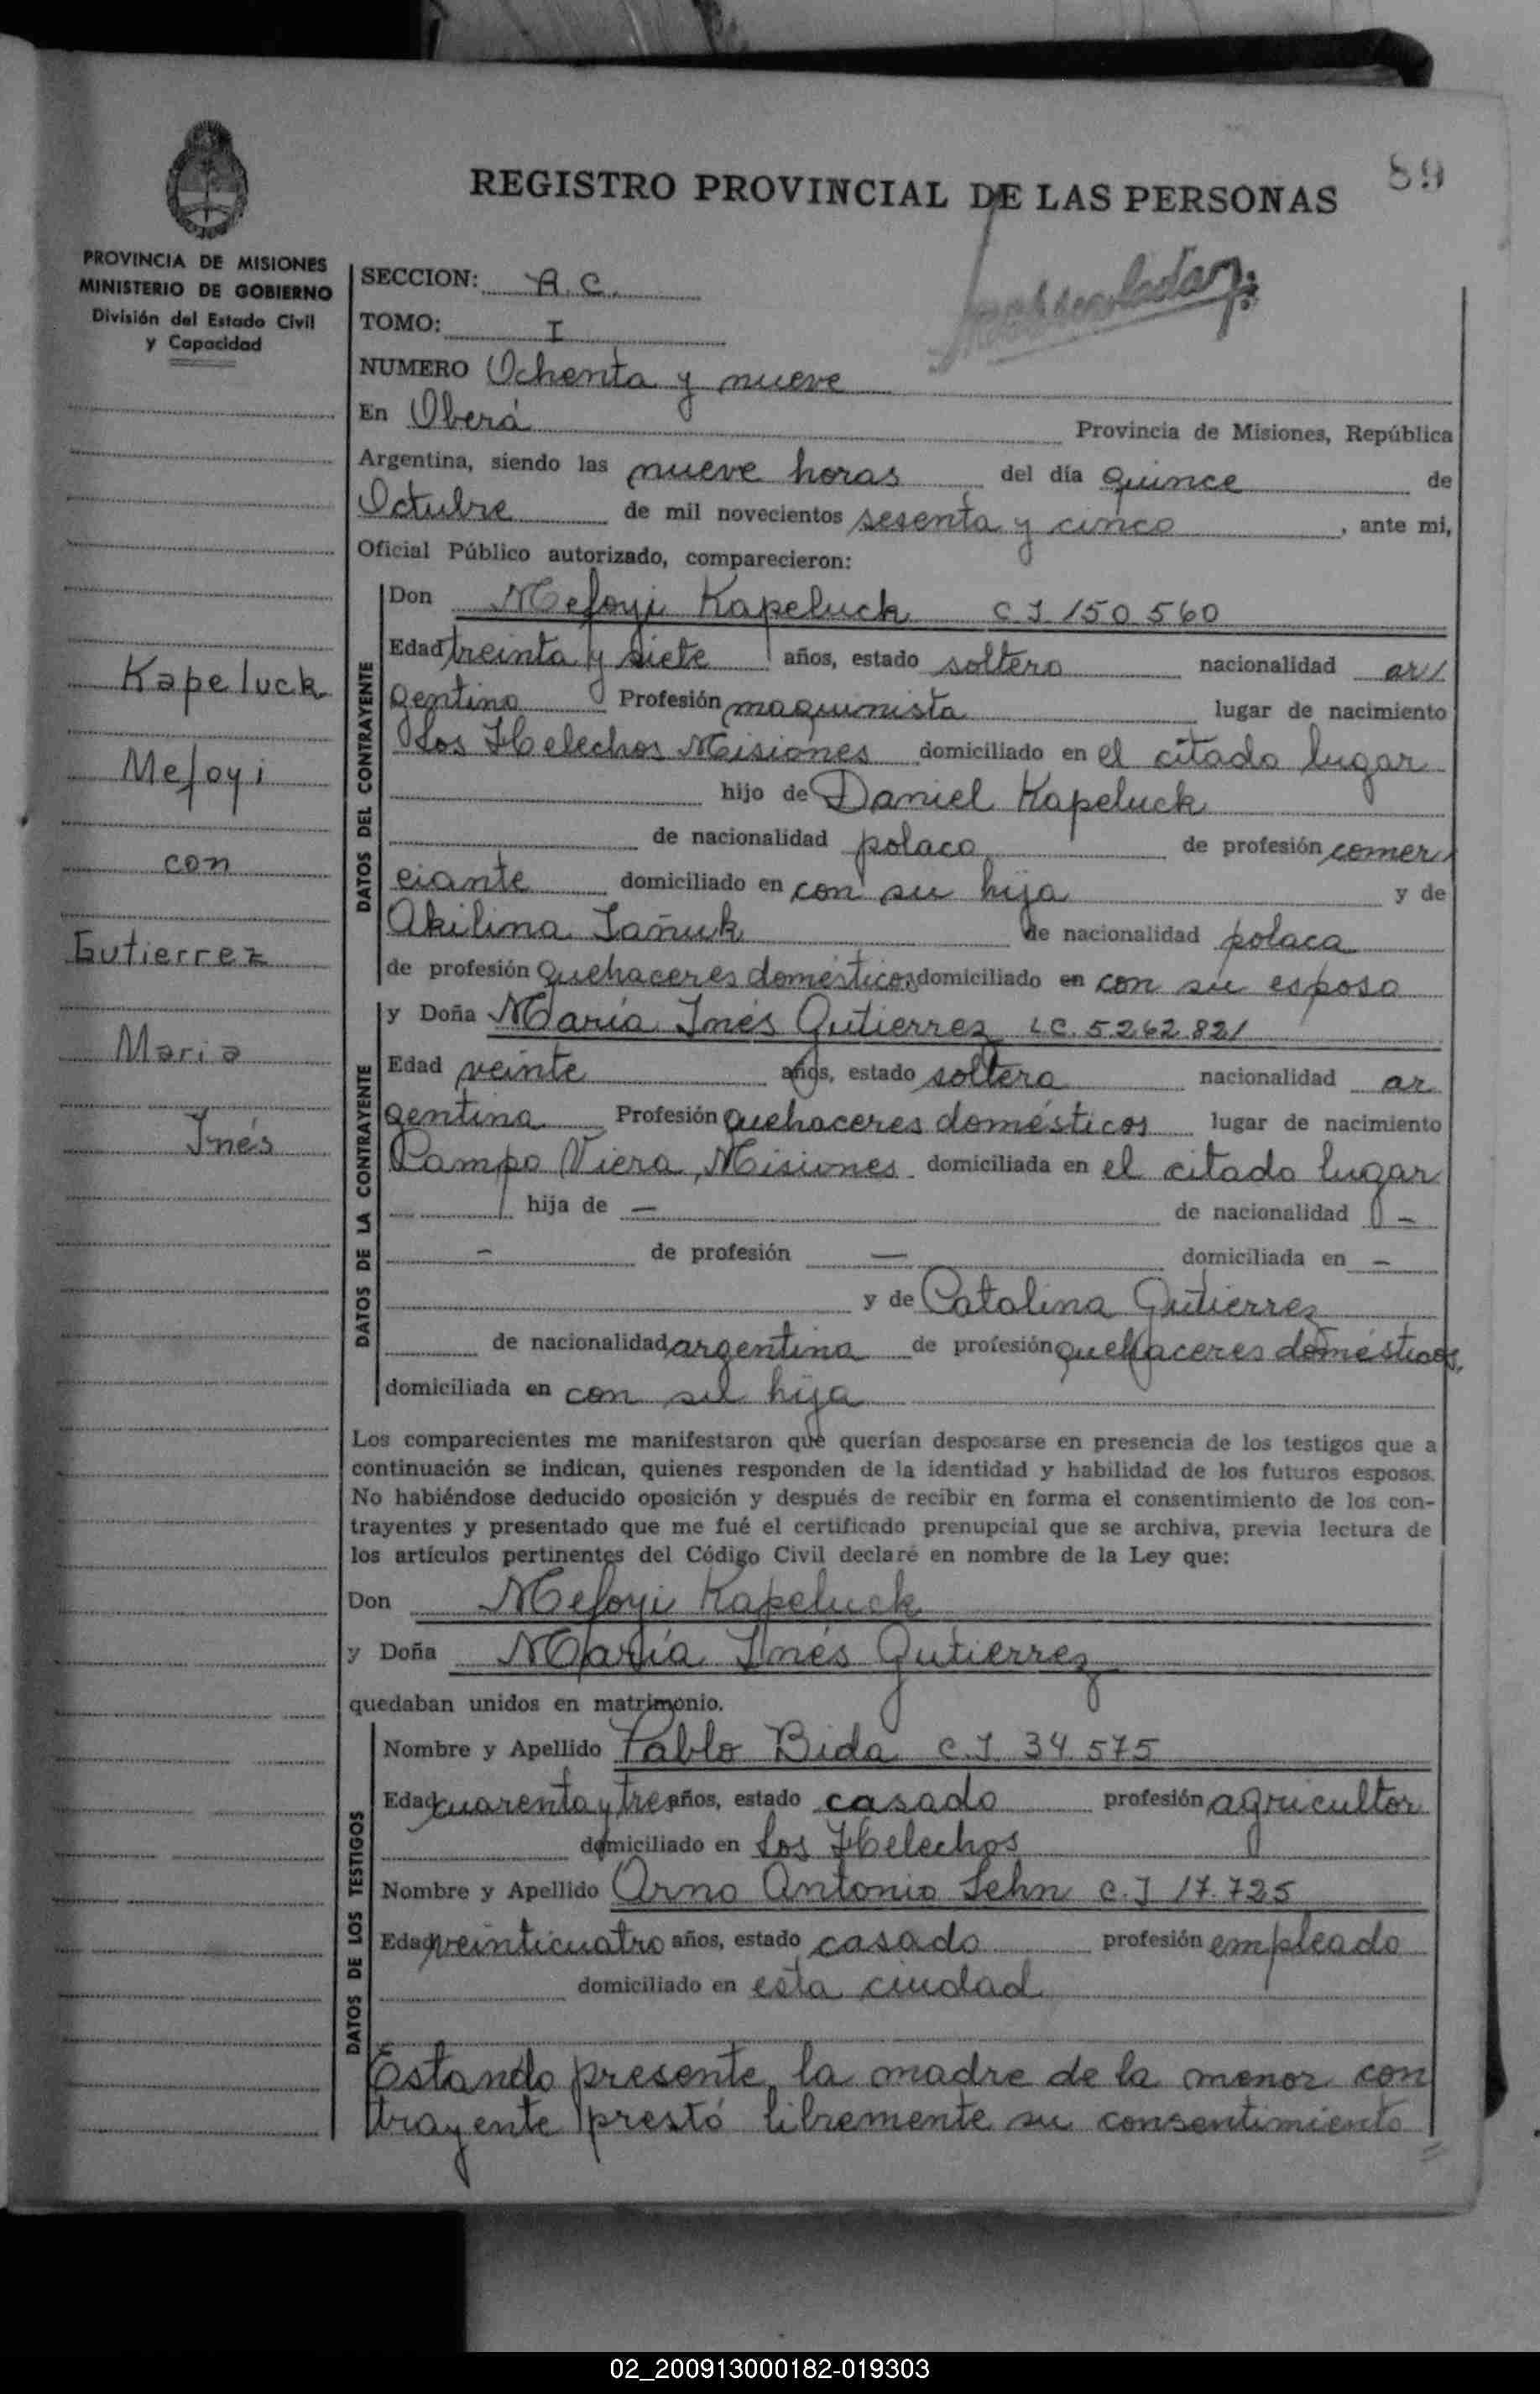 REGISTRO PROVINCIAL DE LAS PERSONAS
89
PROVINCIA DE MISIONES
MINISTERIO DE GOBIERNO
División del Estado Civil
y Capacidad
Kapeluck
Mefoyi
con
Gutierrez
Maria
Inés
SECCION: A. C.
TOMO: I
NUMERO Ochenta y nueve
En Oberá Provincia de Misiones, República
Argentina, siendo las nueve horas del día quince de
Octubre de mil novecientos sesenta y cinco, ante mi,
Oficial Público autorizado, comparecieron:
DATOS DEL CONTRAYENTE
Don Mefoyi Kapeluck C I 150 560
Edad treinta y siete años, estado soltero nacionalidad ar/
gentino Profesión maquinista lugar de nacimiento
Los Helechos Misiones domiciliado en el citado lugar
hijo de Daniel Kapeluck
de nacionalidad polaco de profesión comer
ciante domiciliado en con su hija y de
Akilina Iañuk de nacionalidad polaca
de profesión quehaceres domésticos domiciliado en con su esposo
DATOS DE LA CONTRAYENTE
y Doña María Inés Gutierrez L C. 5.262.821
Edad veinte años, estado soltera nacionalidad ar
gentina Profesión quehaceres domésticos lugar de nacimiento
Campo Viera, Misiones domiciliada en el citado lugar
hija de — de nacionalidad -
- de profesión — domiciliada en -
y de Catalina Gutierrez
de nacionalidad argentina de profesión quehaceres domésticos,
domiciliada en con su hija
Los comparecientes me manifestaron que querían desposarse en presencia de los testigos que a
continuación se indican, quienes responden de la identidad y habilidad de los futuros esposos.
No habiéndose deducido oposición y después de recibir en forma el consentimiento de los con-
trayentes y presentado que me fué el certificado prenupcial que se archiva, previa lectura de
los artículos pertinentes del Código Civil declaré en nombre de la Ley que:
Don Mefoyi Kapeluck
y Doña María Inés Gutierrez
quedaban unidos en matrimonio.
DATOS DE LOS TESTIGOS
Nombre y Apellido Pablo Bida C. I 34.575
Edad cuarenta y tres años, estado casado profesión agricultor
domiciliado en Los Helechos
Nombre y Apellido Arno Antonio Sehn C. I 17.725
Edad veinticuatro años, estado casado profesión empleado
domiciliado en esta ciudad
Estando presente la madre de la menor con
trayente prestó libremente su consentimiento
02_200913000182-019303